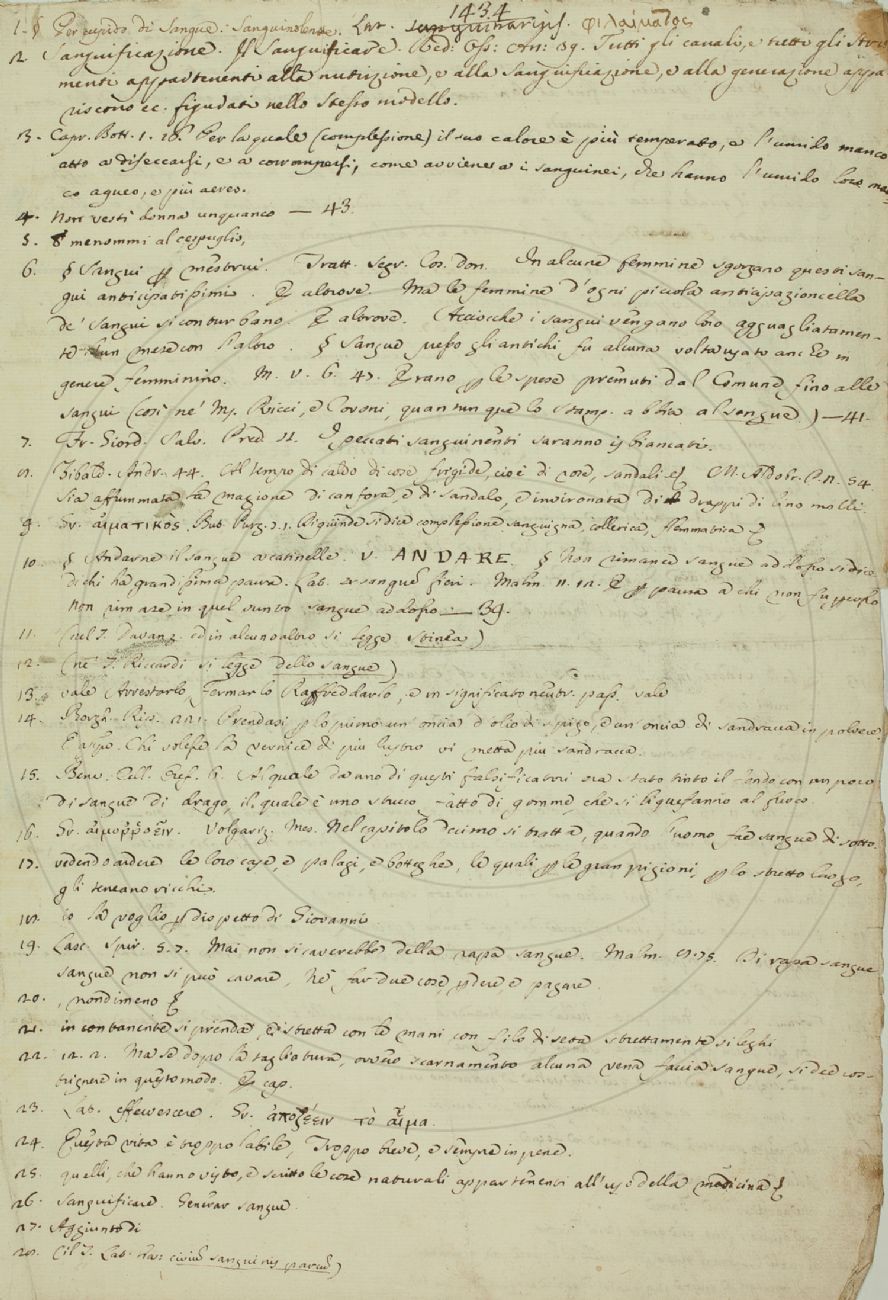 1434
1. § Per cupido di Sangue. Sanguinolente. Lat. sanguinarius. φιλαίματος
2. Sanguificazione. Il Sanguificare. Red. Oss: An: 39. Tutti gli canali, e tutti gli Stru-
menti appartenenti alla nutrizione, e alla Sanguificazione, e alla generazione appa-
riscono ec. figurati nello stesso modello.
3. Capr. Bott. 1. 18. Per la quale (complessione) il suo calore è più temperato, e l'umido manco
atto a diseccarsi, e a corrompersi, come avviene a i sanguinei, che hanno l'umido loro man-
co aqueo, e più aereo.
4. Non vesti donna unquanco — 43.
5. menommi al cespuglio,
6. § Sangui mestrui. Tratt. segr. cos. don. In alcune femmine sgorgano questi san-
gui anticipatissimi. E altrove. Ma le femmine d'ogni piccola anticipazioncella
de' sangui si conturbano. E altrove. Acciocchè i sangui vengano loro agguagliatamen-
te un mese con l'altro § Sangue presso gli antichi fu alcuna volta usato anche in
genere femminino. M. V. 6. 47. Erano le spese premuti dal Comune fino alle
sangui (così ne' Ms. Ricci, e Covoni, quantunque lo stamp. abbia al sangue) — 41.
7. Fr. Giord. Salv. Pred. 11. I peccati sanguinenti saranno isbiancati.
8. Tibald. Andr. 44. Al tempo di caldo di cose frigide, cioè di rose, sandali. M. Aldobr. P. N. 54
Sia affummata la magione di canfora, e di sandalo, e invironata di drappi di lino molli.
9. Gr. αἱματικὸς. But. Purg. 7. 1. si dice complessione sanguigna, collerica, flemmatica
10. § Andarne il sangue a catinelle. V. ANDARE. § Non rimaner sangue addosso si dice
di chi ha grandissima paura. Lat. exsanguem fieri. Malm. 11. 12. E paura a chi non fu percosso
Non rimase in quel punto sangue addosso — 39.
11. (nel T. Davanz. ed in alcun altro si legge stinea)
12. (ne' T. Riccardi si legge dello sangue)
13. vale Arrestarlo, Fermarlo, Raffreddarlo, e in significato neutr. pass. vale
14. Borgh. Rip. 221. Prendasi lo primo un'oncia d'olio di spigo, e un'oncia di sandracca in polvere.
E appo. Chi volesse la vernice di più lustro vi metta più sandracca.
15. Benv. Cell. Oref. 6. Al quale da uno di questi falsificatori era stato tinto il fondo con un poco
di sangue di drago, il quale è uno stucco fatto di gomme, che si liquefanno al fuoco
16. Gr. αἱμορῥοεῖν. Volgariz. Mes. Nel capitolo decimo si tratta, quando l'uomo fae sangue di sotto.
17. vedendo ardere le loro case, e palagi, e botteghe, le quali le gran pigioni, lo stretto luogo,
gli teneano ricchi.
18. io la voglio dispetto di Giovanni.
19. Lasc. Spir. 5. 7. Mai non si caverebbe della rapa sangue. Malm. 8. 75. Di rapa sangue
sangue non si può cavare, Nè far due cose, perdere, e pagare.
20. , nondimeno
21. incontanente si prenda, e istretta con le mani, con filo di seta strettamente si leghi
22. 12. 2. Ma se dopo la tagliatura, ovvero scarnamento alcuna vena faccia sangue, si dee cos-
trignere in questo modo. E cap.
23. Lat. effervescere. Gr. ἀποζέειν τὸ αἷμα.
24. Questa vita è troppo labile, Troppo breve, e sempre in pene.
25. quelli, che hanno visto, e scritto le cose naturali appartenenti all'uso della medicina
26. Sanguificare. Generar sangue.
27. Aggiunto di
28. (il T. Lat. ha: civium sanguinis parcus)